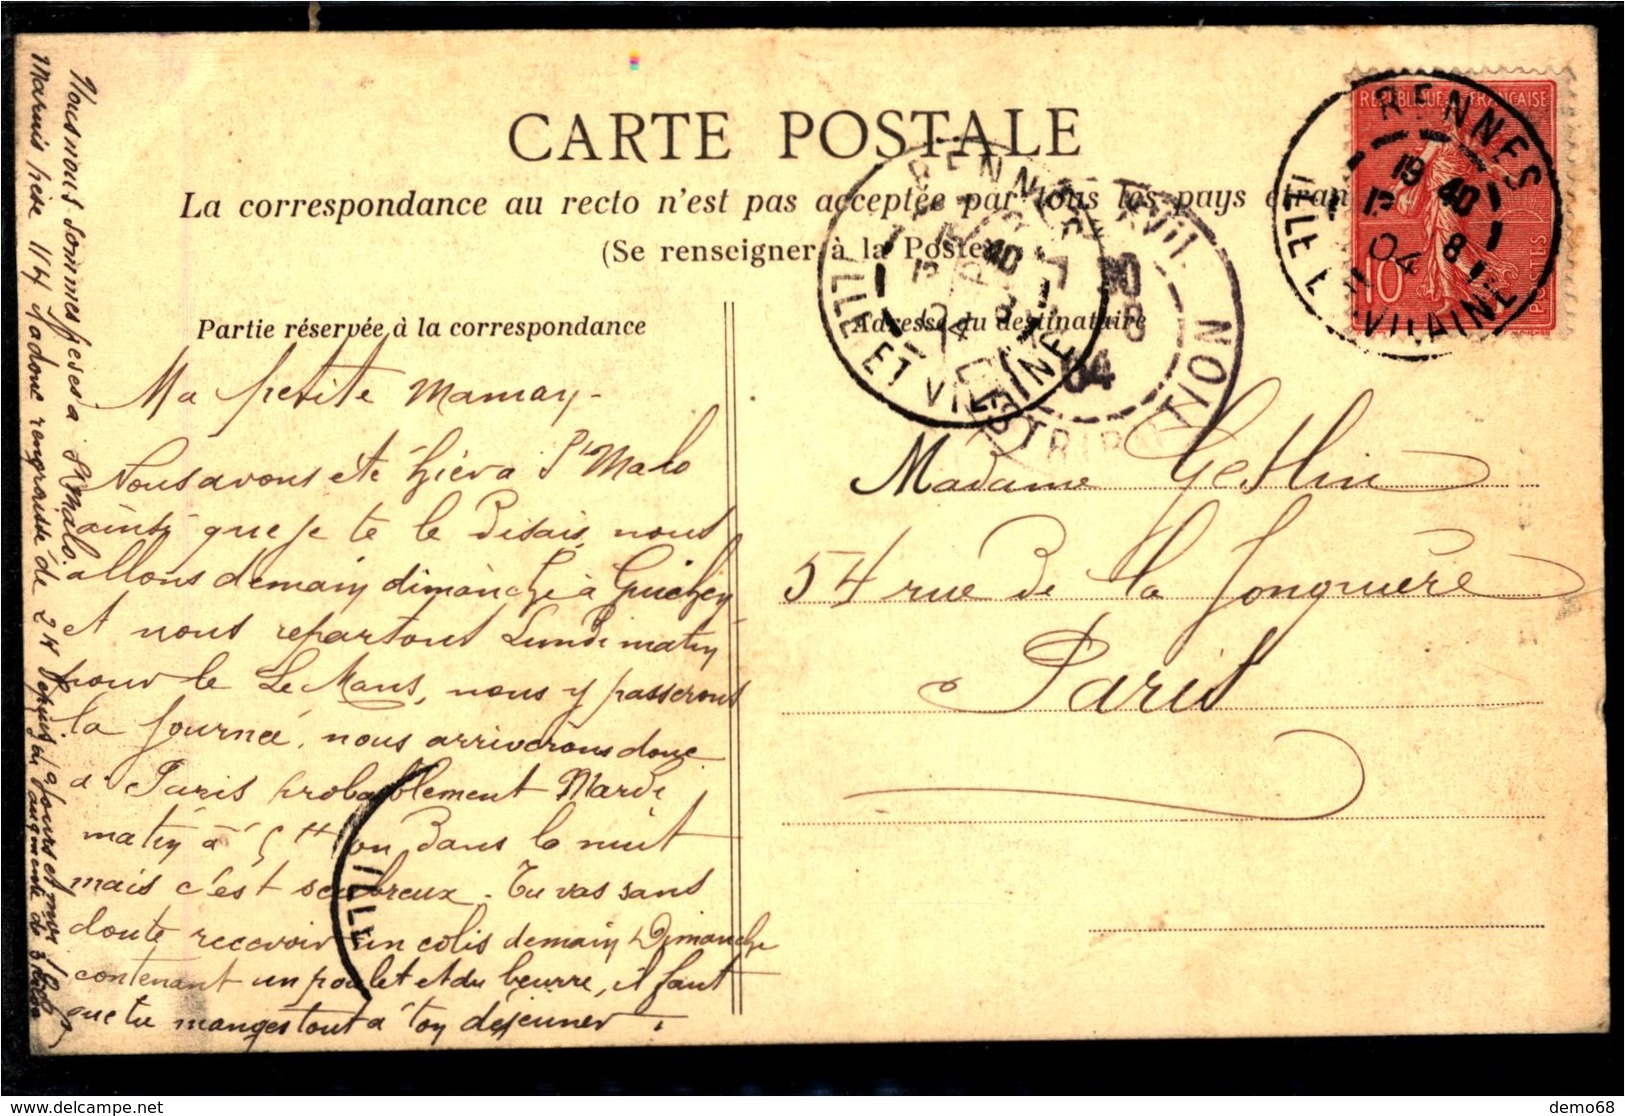 CARTE POSTALE
La correspondance au recto n'est pas acceptée par tous les pays étran
(Se renseigner à la Poste)
Partie réservée à la correspondance
Adresse du destinataire
REPUBLIQUE FRANÇAISE
10
POSTES
RENNES
19 40
8
04
ILLE ET VILAINE
RENNES
ILLE ET VILAINE
PARIS XVII
8
04
DISTRIBUTION
ILLE
Ma petite maman
Nous avons été hier a St Malo
ainsi que je te le disais, nous
allons demain dimanche à Guichen
et nous repartons Lundi matin
pour le Le Mans, nous y passerons
la journée, nous arriverons donc
a Paris probablement Mardi
matin à 5 H ou dans la nuit
mais c'est scabreux. Tu vas sans
doute recevoir un colis demain Dimanche
contenant un poulet et du beurre, il faut
que tu manges tout à ton déjeuner.
Nous nous sommes pesés a St Malo.
pèse 114 j'ai donc rengraissé de 2 depuis jours et mon
augmenté de 3
Madame Gethin
54 rue de la Jonquière
Paris
delcampe.net
demo68